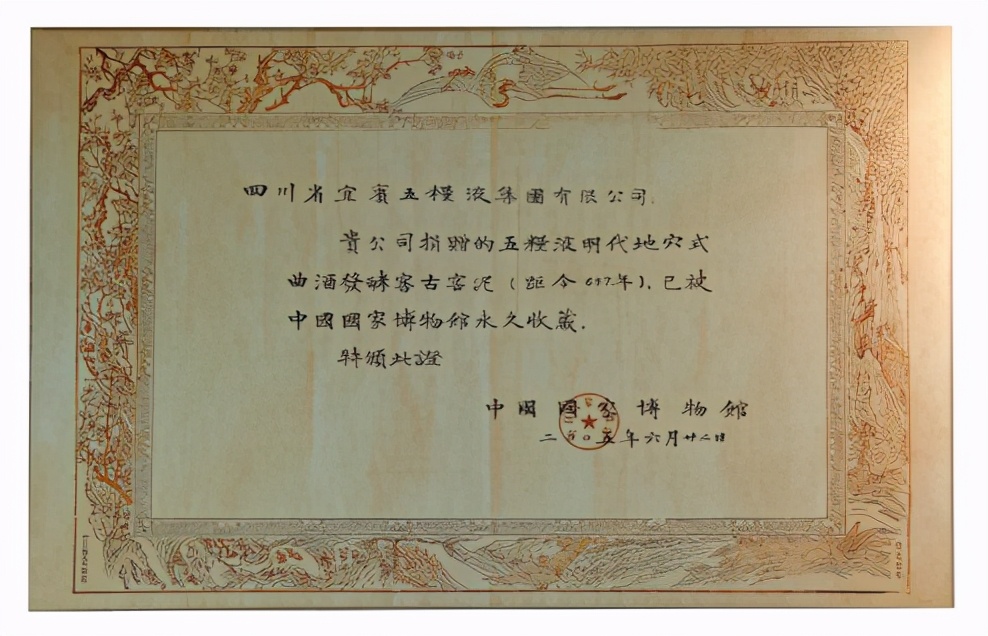 四川省宜賓五糧液集團有限公司:
貴公司捐贈的五糧液明代地穴式
曲酒發酵窖古窖泥(距今637年),已被
中國國家博物館永久收藏.
特頒此證
中國國家博物館
二〇〇五年六月廿二日